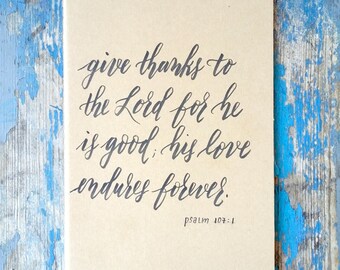 give thanks to
the Lord for he
is good; his love
endures forever.
psalm 107:1